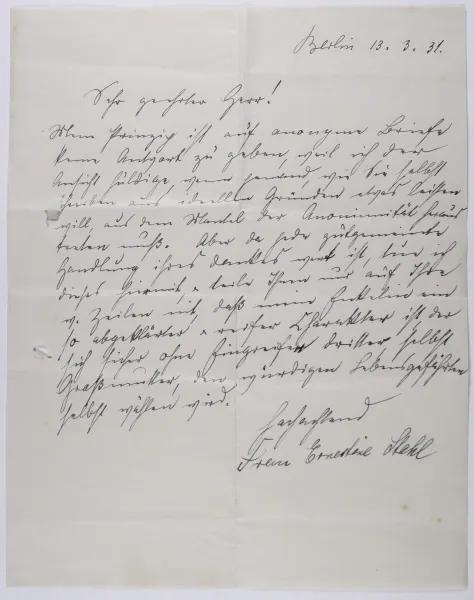 Berlin 13. 3. 31.
Sehr geehrter Herr!
Mein Prinzip ist auf anonyme Briefe
keine Antwort zu geben, weil ich der
Ansicht huldige, wenn jemand, wie Sie selbst
schreiben aus ideellen Gründen etwas leisten
will, aus dem Mantel der Anonimität heraus
treten muß. Aber da jede gutgemeinte
Handlung ihres Dankes wert ist, tue ich
dieses hiermit, & teile Ihnen nur auf Ihre
w. Zeilen mit, daß mein Enkelin ein
so abgeklärter & reifer Charakter ist der
sich sicher ohne Eingreifen dritter selbst
Großmutter, den würdigen Lebensgefährten
selbst wählen wird.
Hochachtend
Frau Ernestine Stahl